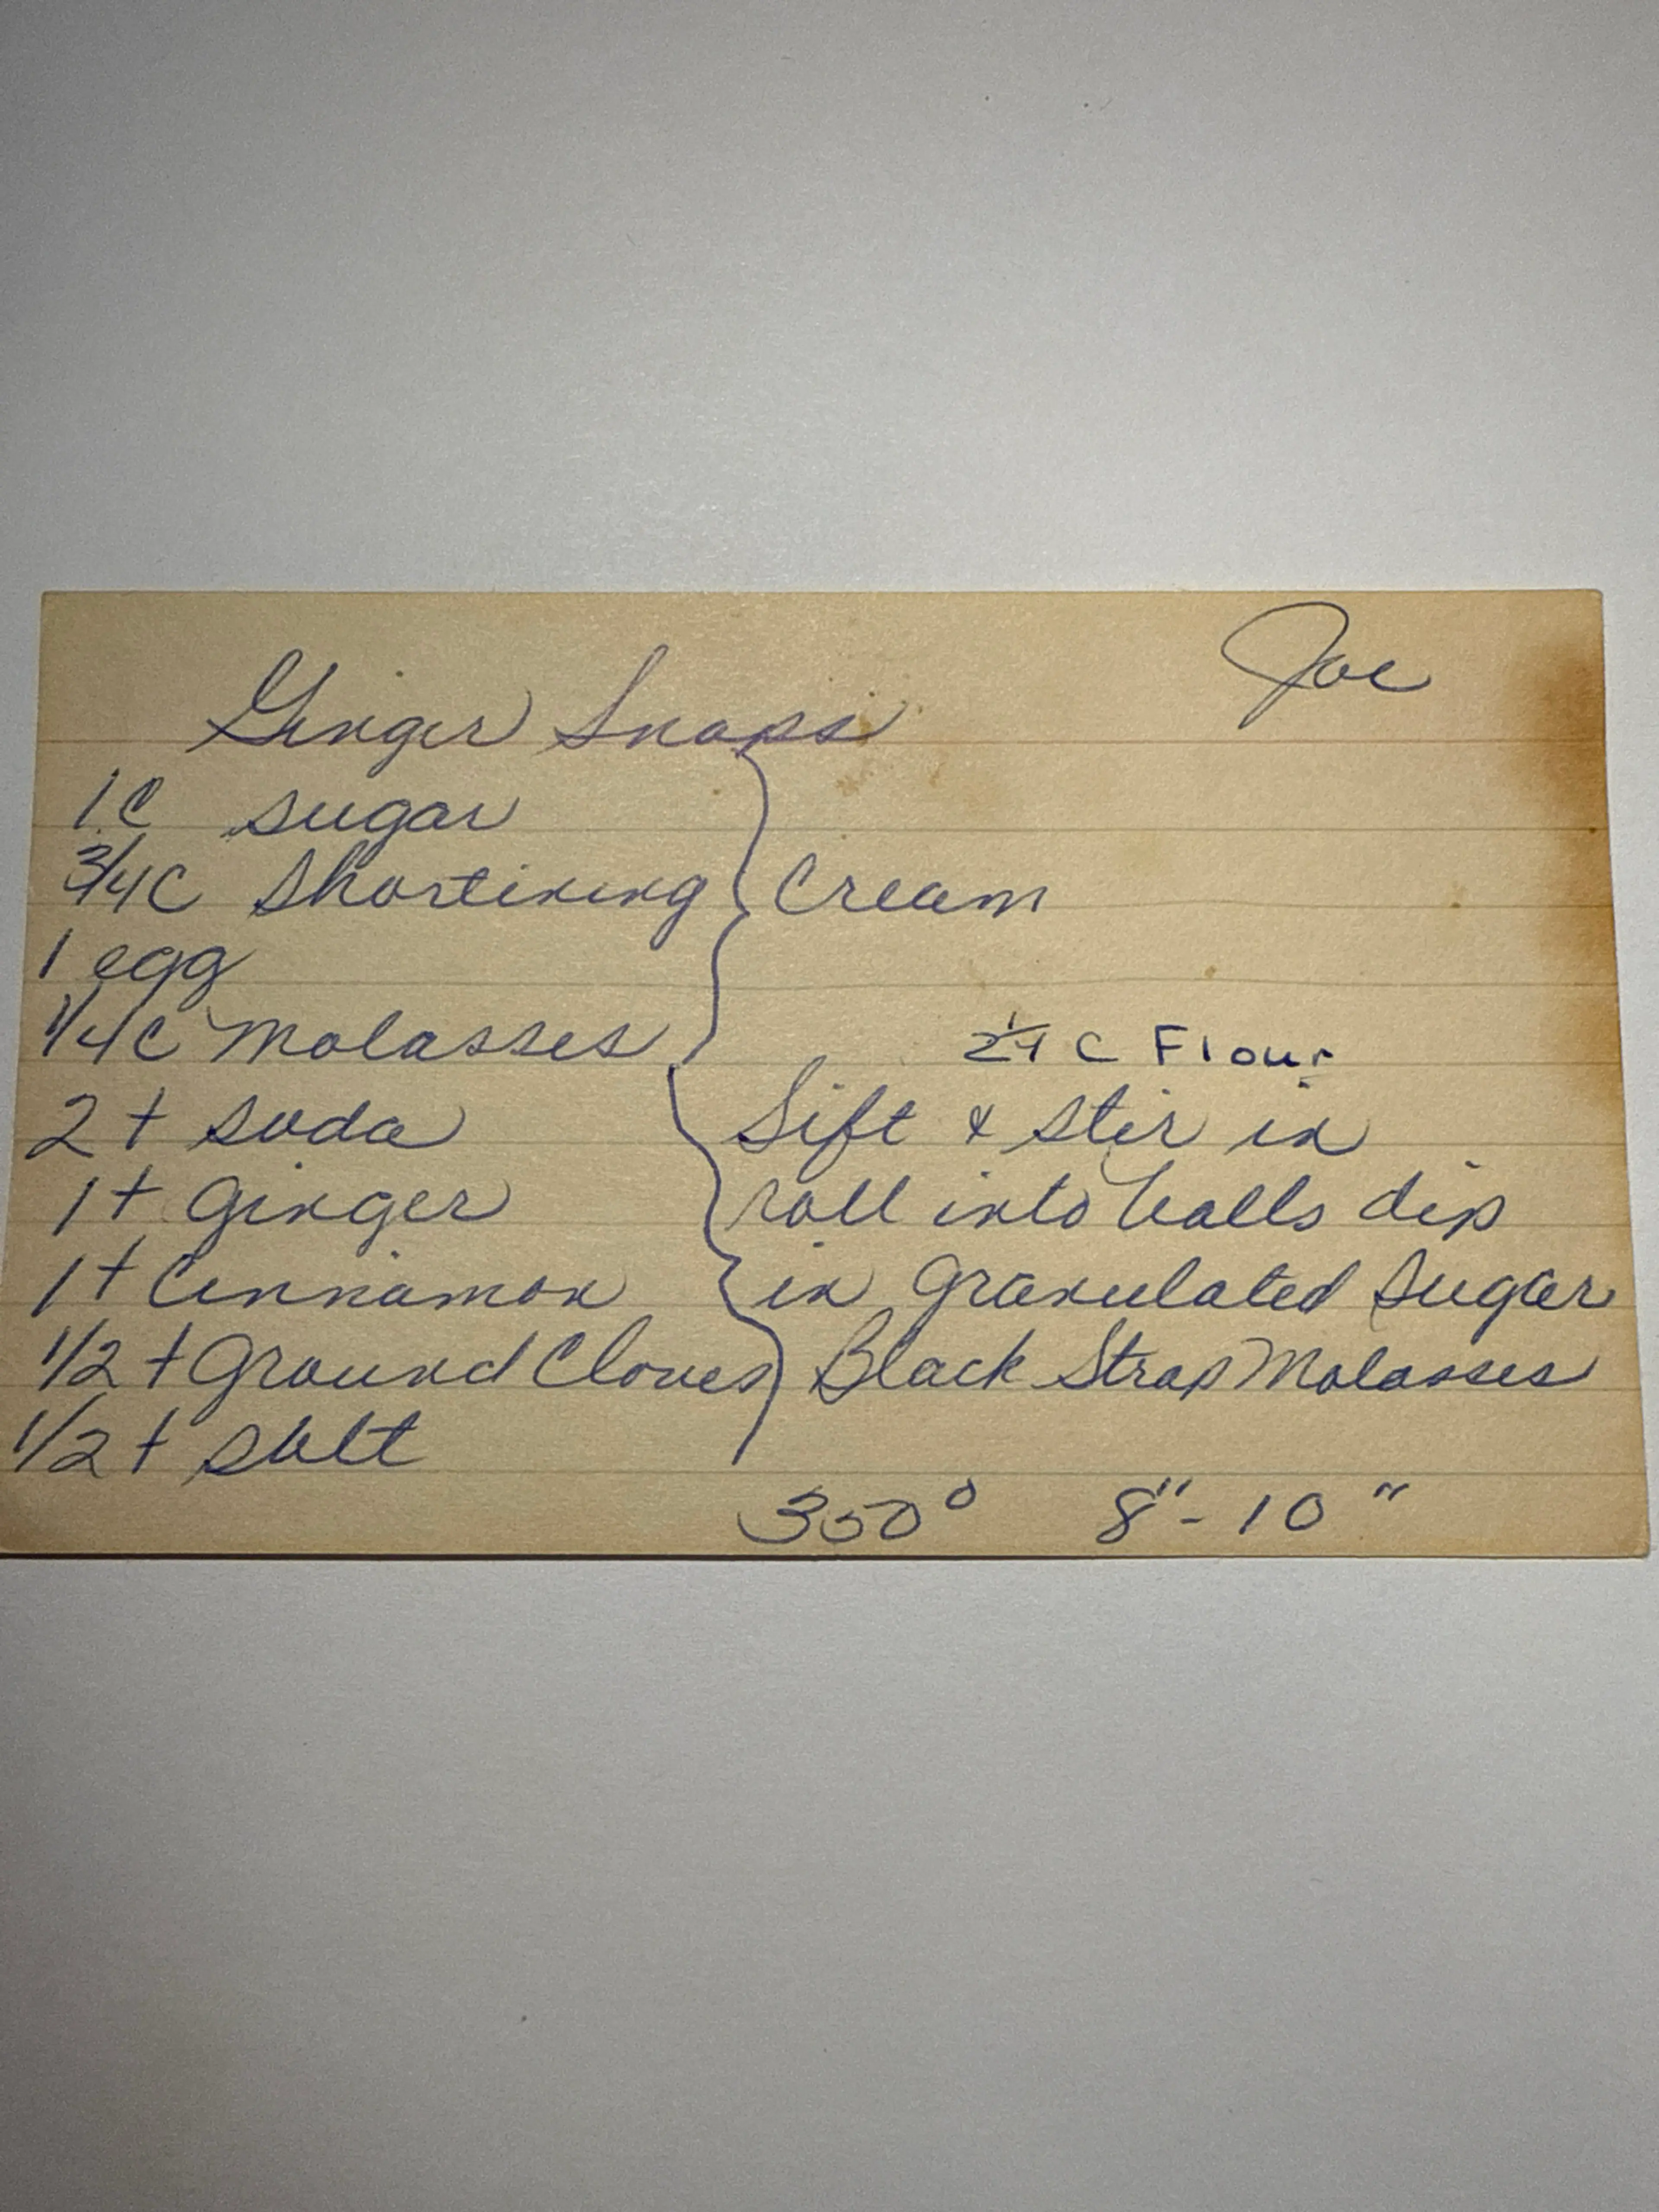 Joe
Ginger Snaps
1 C sugar
3/4 C Shortining
Cream
1 egg
1/4 C Molasses
2 1/4 C Flour
2 t soda
Sift & stir in
1 t Ginger
roll into balls dip
1 t Cinnamon
in Granulated Sugar
1/2 t Ground Cloves
Black Strap Molasses
1/2 t salt
350° 8" - 10"